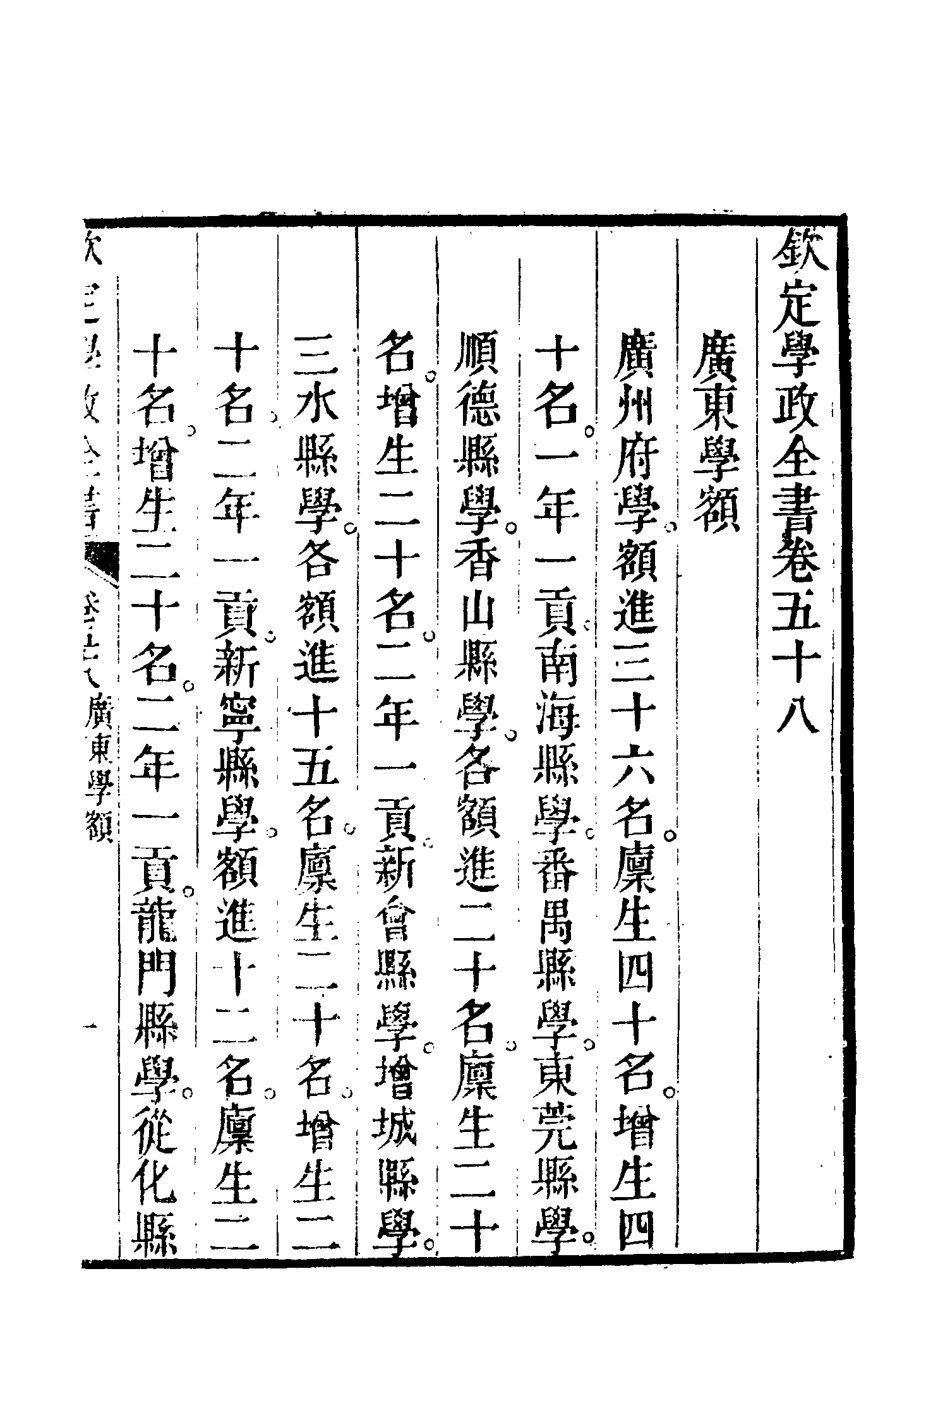 欽定學政全書卷五十八
廣東學額
廣州府學。額進三十六名。廩生四十名。增生四
十名。一年一貢。南海縣學。番禺縣學。東莞縣學。
順德縣學。香山縣學。各額進二十名。廩生二十
名。增生二十名。二年一貢。新會縣學。增城縣學。
三水縣學。各額進十五名。廩生二十名。增生二
十名。二年一貢。新寧縣學。額進十二名。廩生二
十名。增生二十名。二年一貢。龍門縣學。從化縣
欽定學政全書 卷五十八 廣東學額 一